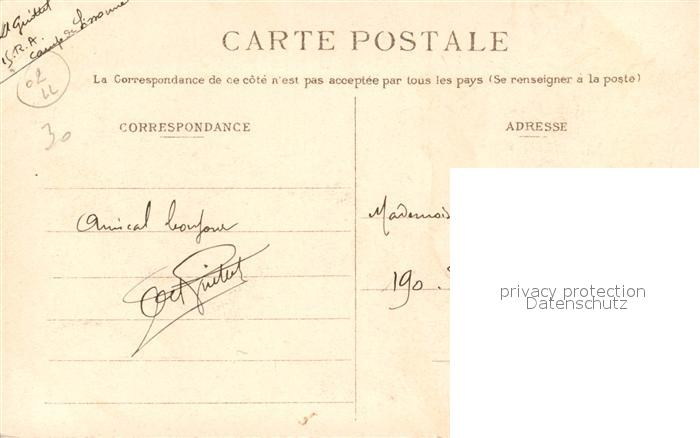 Guillet
15. R. A.
Camp de Sissonne
CARTE POSTALE
La Correspondance de ce côté n'est pas acceptée par tous les pays (Se renseigner à la poste)
02
LL
30
CORRESPONDANCE
ADRESSE
Amical bonjour
Mademois
Guillet
190.
privacy protection
Datenschutz